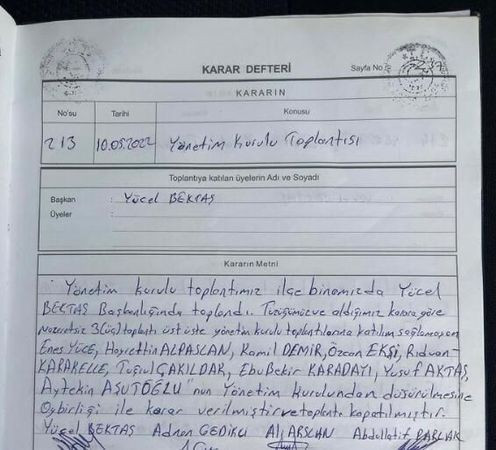 KARAR DEFTERİ
Sayfa No
KARARIN
No'su
Tarihi
Konusu
213
10.05.2022
Yönetim Kurulu Toplantısı
Toplantıya katılan üyelerin Adı ve Soyadı
Başkan : Yücel BEKTAŞ
Üyeler :
Kararın Metni
Yönetim kurulu toplantımız ilçe binamızda Yücel
BEKTAŞ Başkanlığında toplandı. Tüzüğümüz ve aldığımız karara göre
Mazeretsiz 3(üç) toplantı üst üste yönetim kurulu toplantılarına katılım sağlamayan
Enes YÜCE, Hayrettin ALPASLAN, Kamil DEMİR, Özcan EKŞİ, Rıdvan
KARAKELLE, Tuğrul ÇAKILDAR, Ebubekir KARADAYI, Yusuf AKTAŞ,
Aytekin AŞUTOĞLU'nun Yönetim Kurulundan düşürülmesine
Oybirliği ile karar verilmiştir ve toplantı kapatılmıştır.
Yücel BEKTAŞ Adnan GEDİKLİ Ali ARSLAN Abdullatif PARLAK